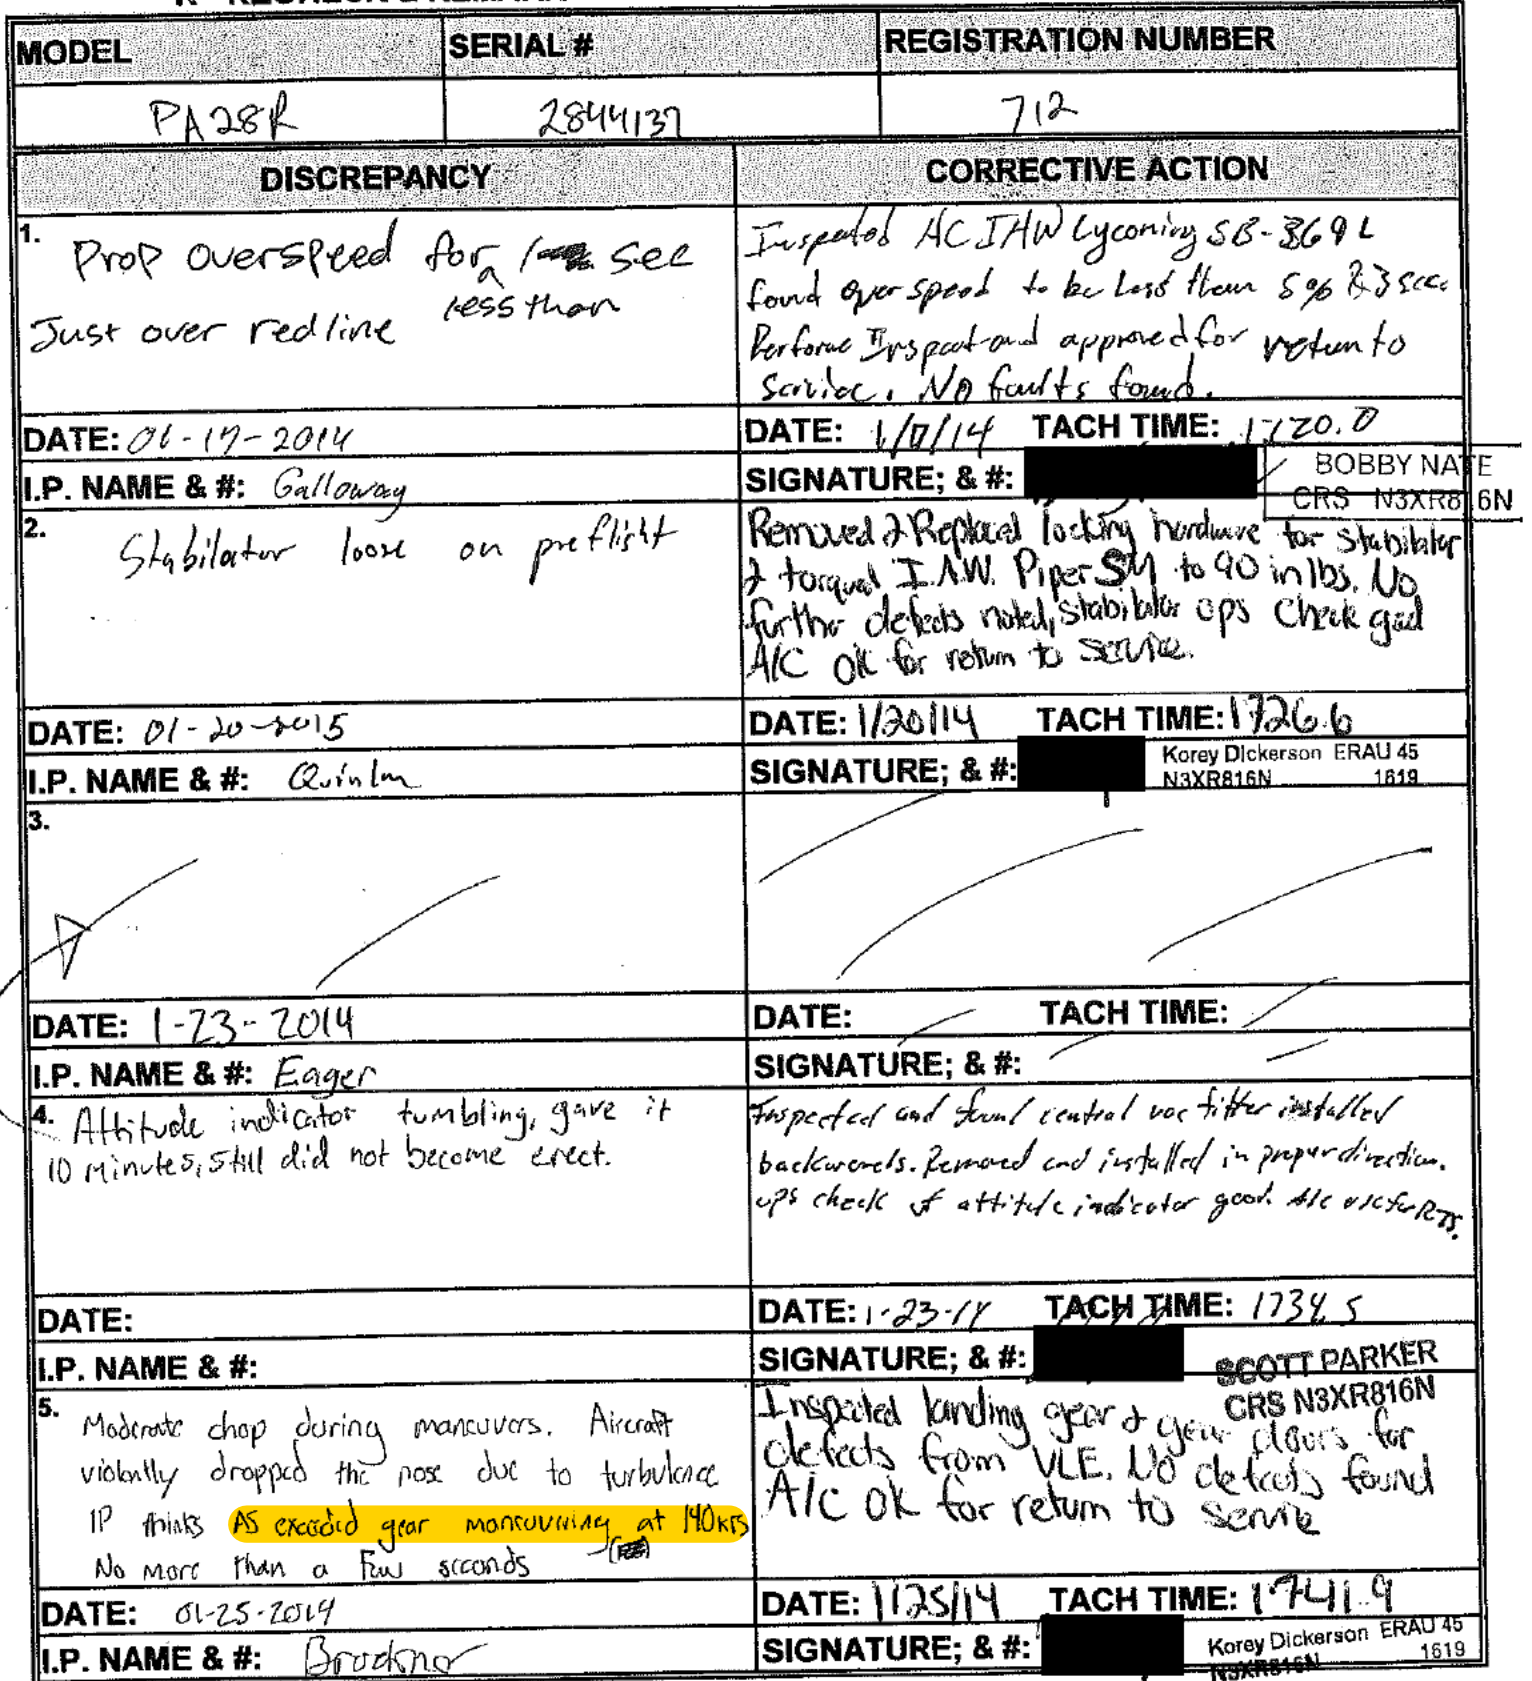 MODEL SERIAL # REGISTRATION NUMBER
PA28R 2844137 712
DISCREPANCY CORRECTIVE ACTION
1. Prop overspeed for less than 1 sec
Just over redline
Inspected AC IAW Lycoming SB-369L
found over speed to be less than 5% & 3 sec
Perform Inspect and approved for return to
service. No faults found.
DATE: 01-17-2014
DATE: 1/17/14 TACH TIME: 1720.0
I.P. NAME & #: Galloway
SIGNATURE; & #:
BOBBY NATE
CRS N3XR816N
2. Stabilator loose on preflight
Removed & Replaced locking hardware for stabilator
& torqued I.A.W. Piper SM to 90 in lbs. No
further defects noted, stabilator ops check good
A/C ok for return to service.
DATE: 01-20-2015
DATE: 1/20/14 TACH TIME: 1726.6
I.P. NAME & #: Quinlan
SIGNATURE; & #:
Korey Dickerson ERAU 45
N3XR816N 1619
3.
DATE: 1-23-2014
DATE: TACH TIME:
I.P. NAME & #: Eager
SIGNATURE; & #:
4. Attitude indicator tumbling, gave it
10 minutes, still did not become erect.
Inspected and found central vac filter installed
backwards. Removed and installed in proper direction.
ops check of attitude indicator good. A/C ok for RTS.
DATE:
DATE: 1-23-14 TACH TIME: 1734.5
I.P. NAME & #:
SIGNATURE; & #:
SCOTT PARKER
CRS N3XR816N
5. Moderate chop during maneuvers. Aircraft
violently dropped the nose due to turbulence
IP thinks AS exceeded gear maneuvering at 140kts
No more than a few seconds
Inspected landing gear & gear doors for
defects from VLE. No defects found
A/C ok for return to service
DATE: 01-25-2014
DATE: 1/25/14 TACH TIME: 1741.9
I.P. NAME & #:
SIGNATURE; & #:
Korey Dickerson ERAU 45
N3XR816N 1619